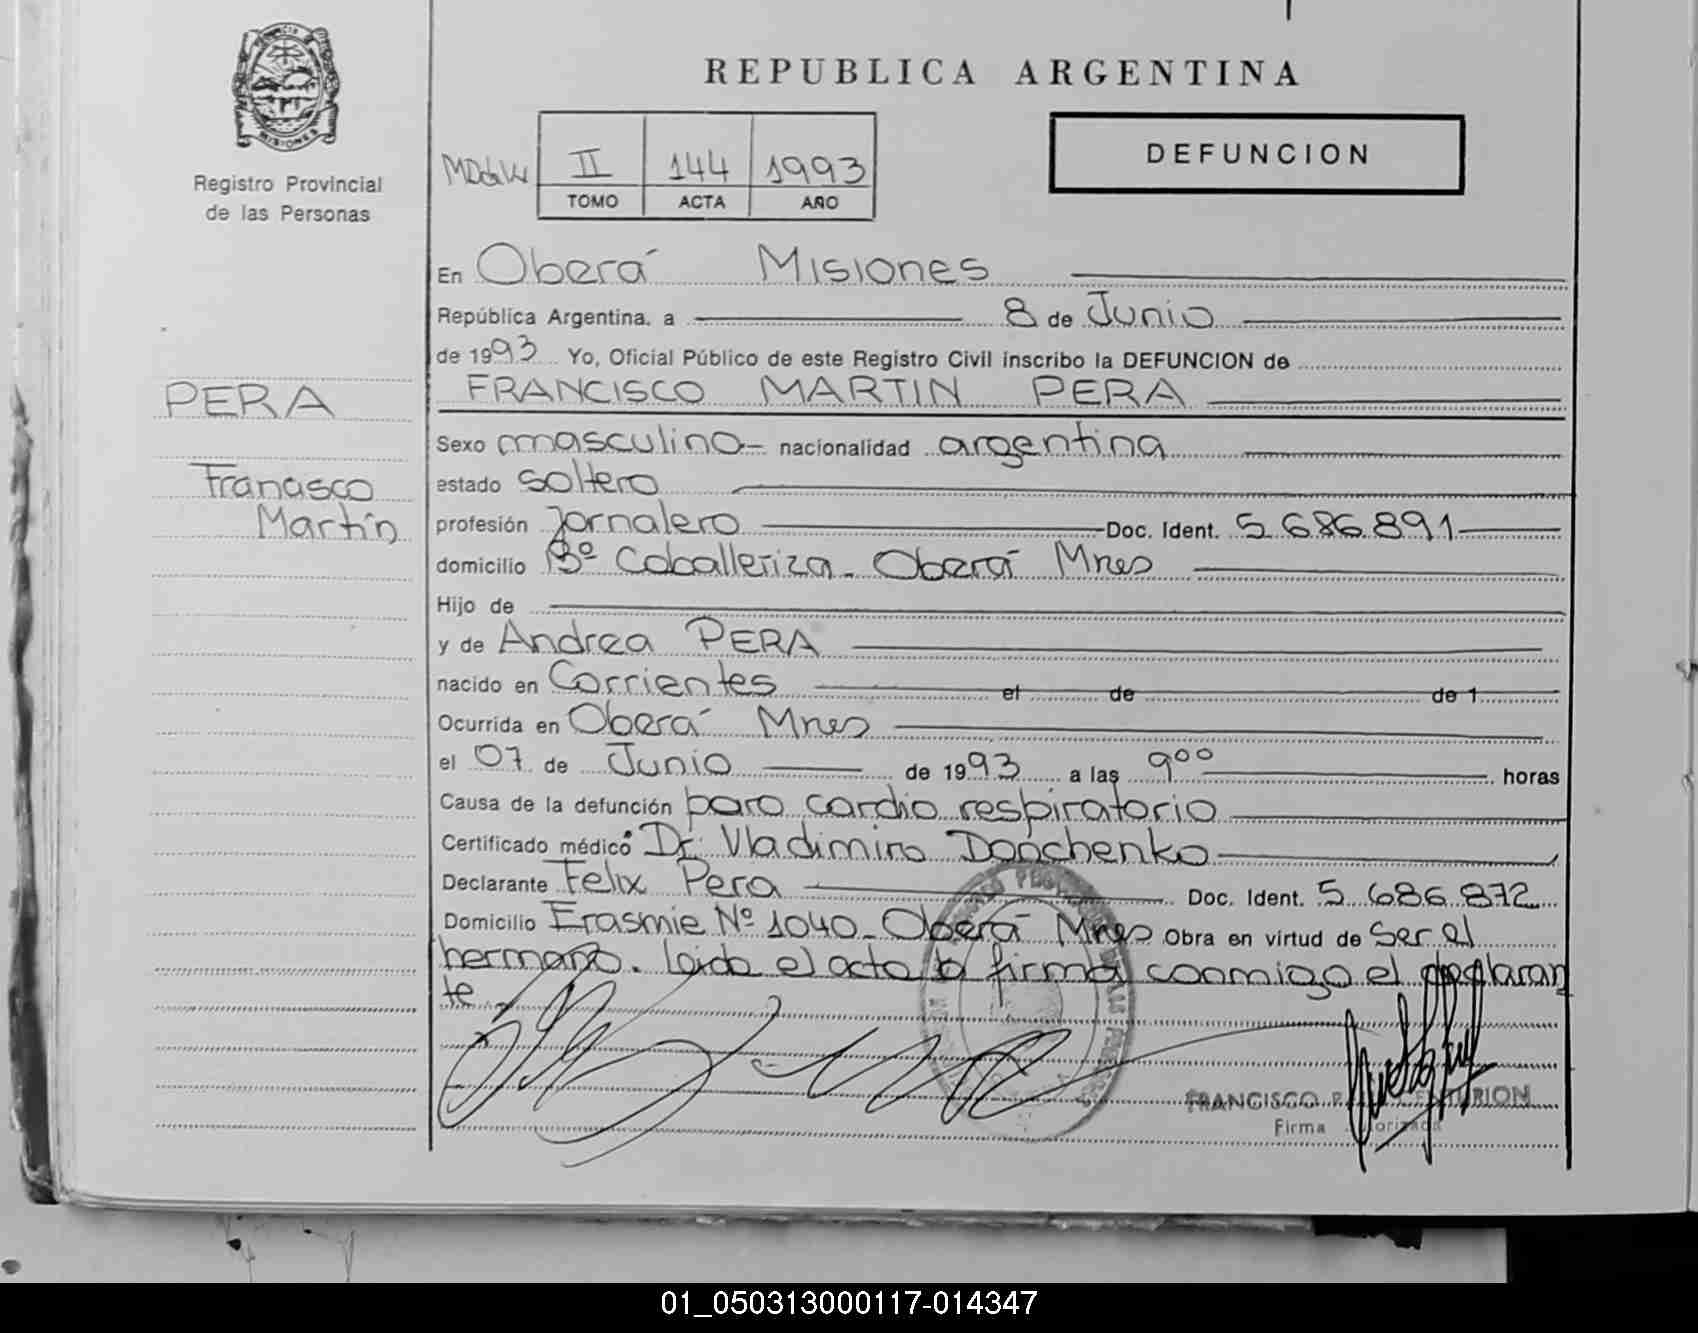 REPUBLICA ARGENTINA
MISIONES
Registro Provincial
de las Personas
II 144 1993
TOMO ACTA AÑO
DEFUNCION
En Oberá Misiones
República Argentina, a 8 de Junio
de 1993 Yo, Oficial Público de este Registro Civil inscribo la DEFUNCION de
PERA
FRANCISCO MARTIN PERA
Sexo masculino - nacionalidad argentina
Francisco
estado soltero
Martín
profesión Jornalero Doc. Ident. 5.686.891
domicilio Bº Caballeriza - Oberá Mnes
Hijo de
y de Andrea PERA
nacido en Corrientes el de de 1
Ocurrida en Oberá Mnes
el 07 de Junio de 1993 a las 9⁰⁰ horas
Causa de la defunción paro cardio respiratorio
Certificado médico Dr. Vladimiro Donchenko
Declarante Felix Pera Doc. Ident. 5.686.872
Domicilio Erasmie Nº 1040 - Oberá Mnes Obra en virtud de ser el
hermano. Leida el acta la firma conmigo el declaran
te
FRANCISCO
Firma
01_050313000117-014347